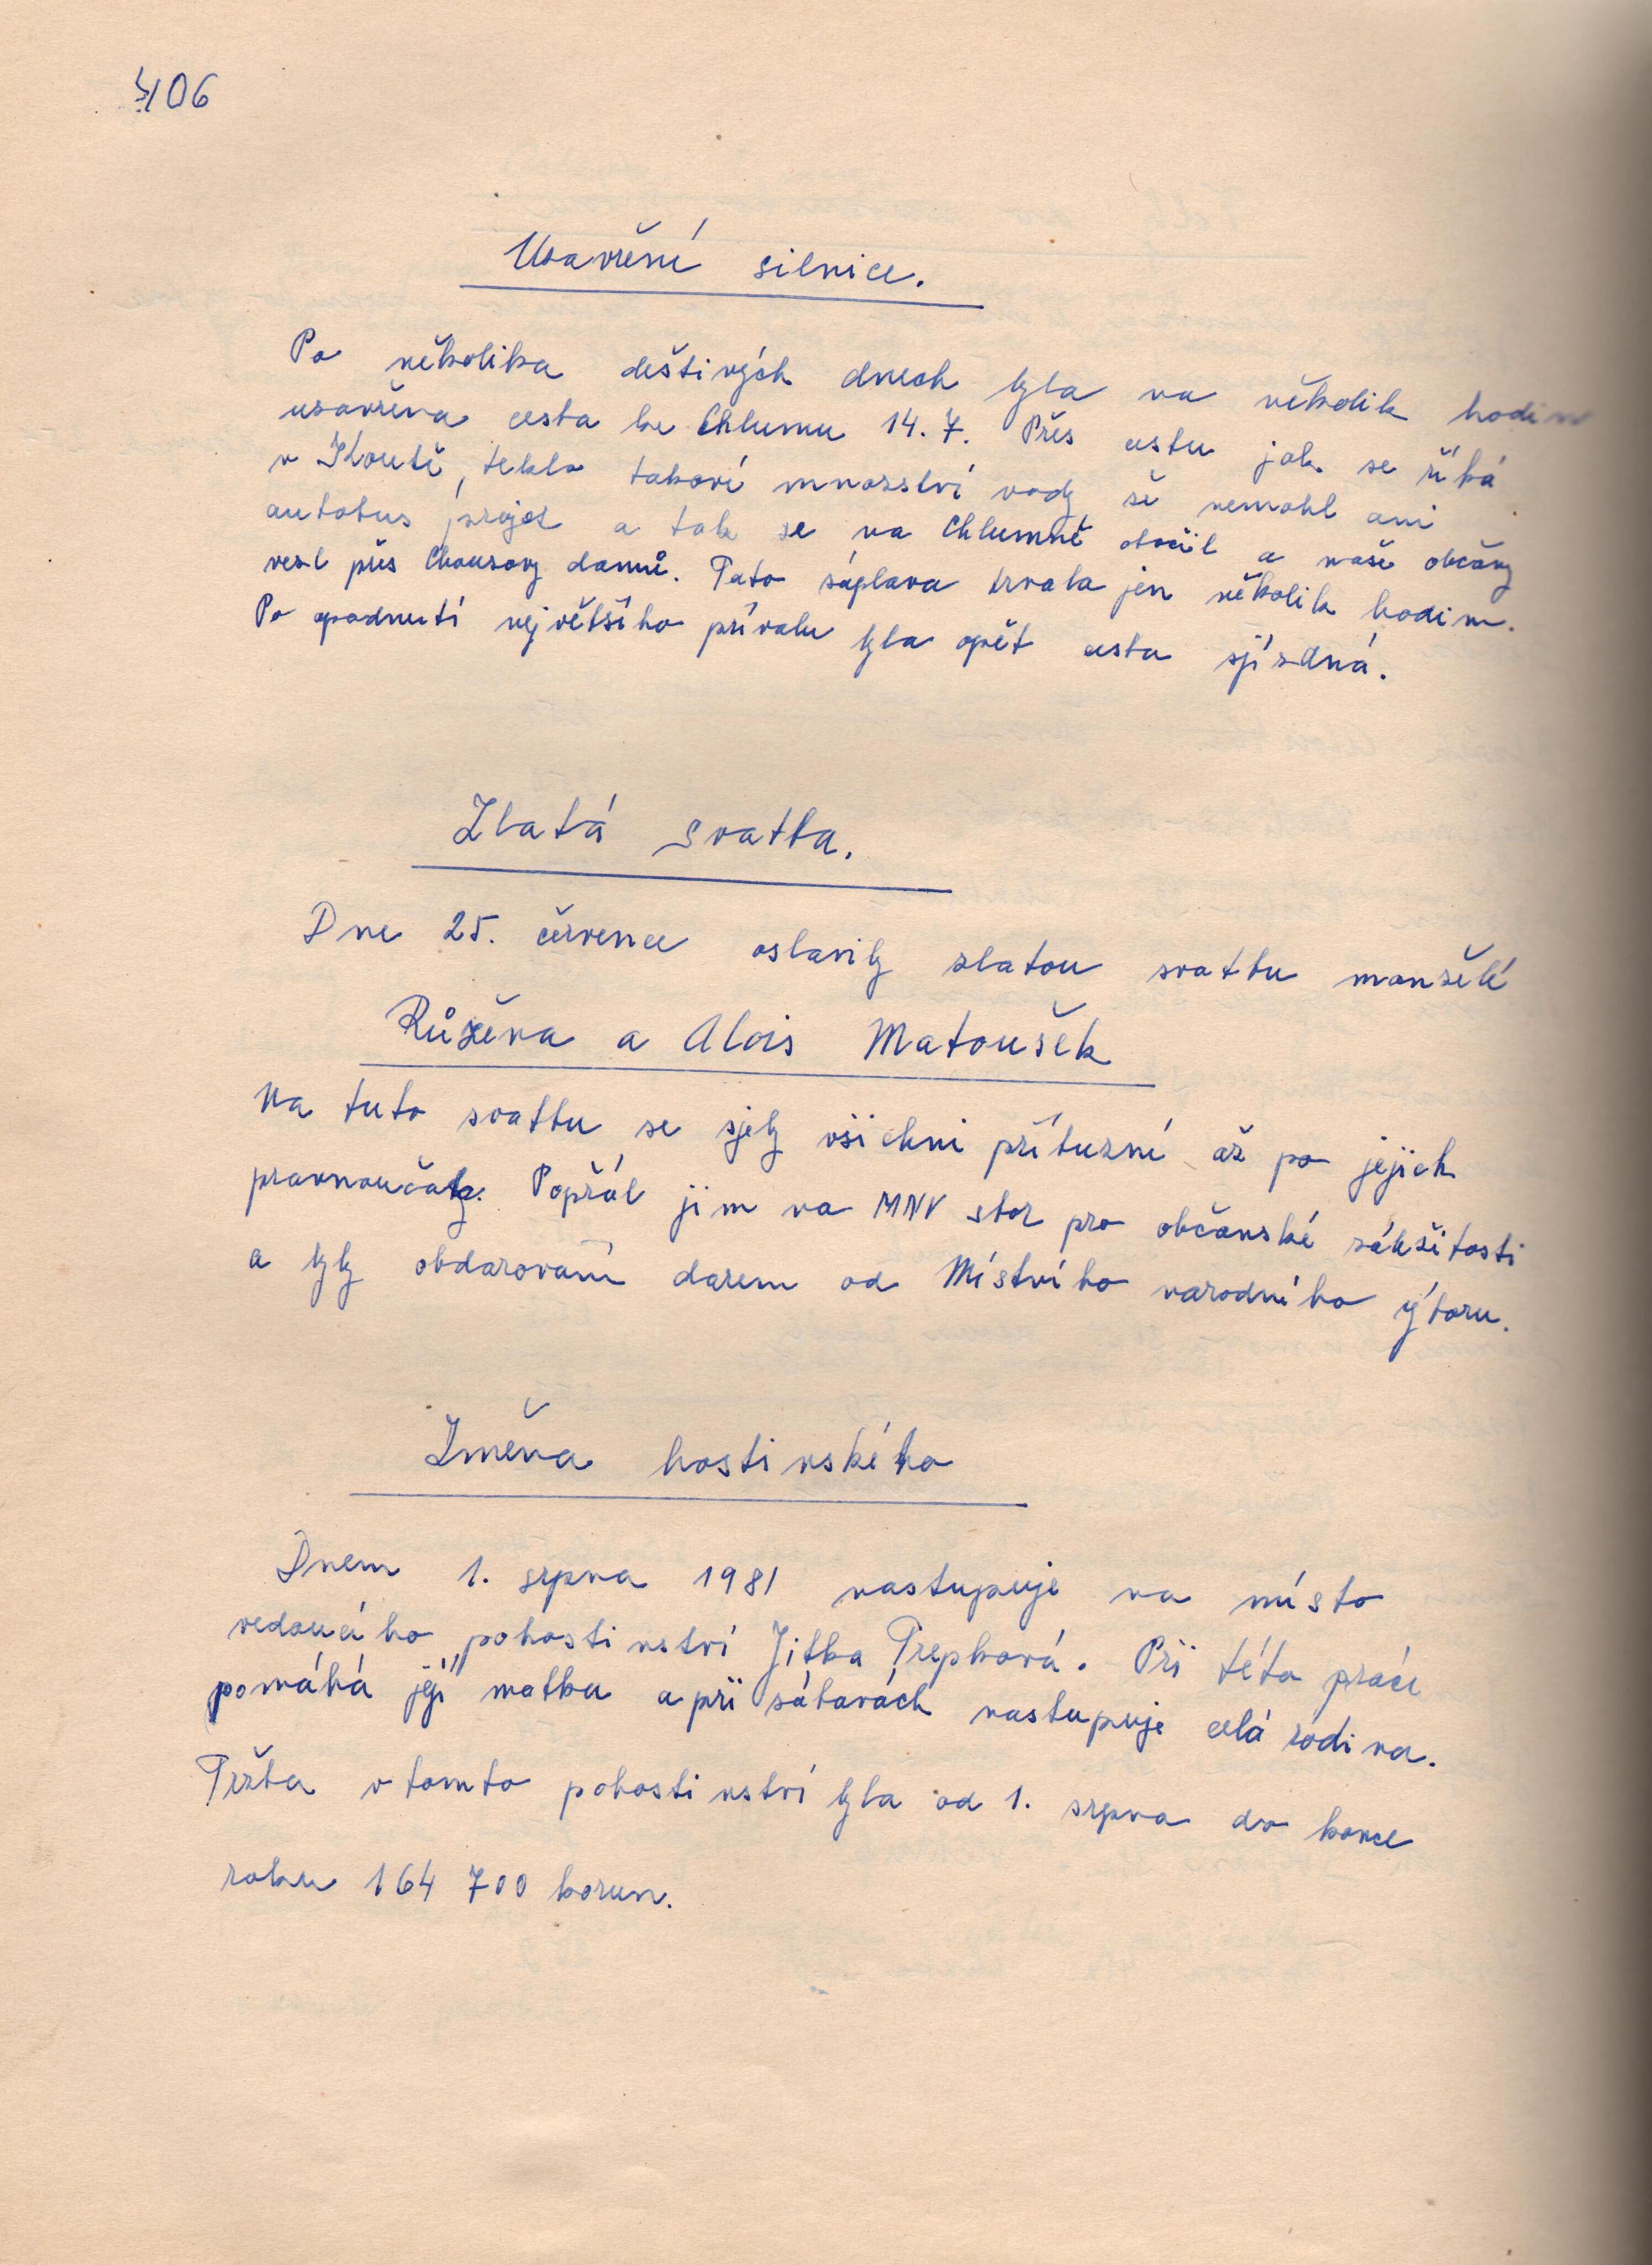 406
Uzavření silnice.
Po několika deštivých dnech byla na několik hodin
uzavřena cesta ke Chlumu 14. 7. Přes cestu jak se říká
v Koutě, teklo takové mnozství vody že nemohl ani
autobus projet a tak se na Chlumně otočil a naše občany
vezl přes Chouzovy domů. Tato záplava trvala jen několik hodin.
Po opadnutí největšího přívalu byla opět cesta sjízdná.
Zlatá svatba.
Dne 25. července oslavily zlatou svatbu manželé
Růžena a Alois Matoušek
Na tuto svatbu se sjely všichni příbuzní až po jejich
pravnoučaty. Popřál jim na MNV sbor pro občanské záležitosti
a byly obdarovaní darem od Místního narodního výboru.
Změna hostinského
Dnem 1. srpna 1981 nastupuje na místo
vedoucího pohostinství Jitka Trepková. Při této práci
pomáhá její matka a při zábavách nastupuje celá rodina.
Tržba v tomto pohostinství byla od 1. srpna do konce
roku 164 700 korun.